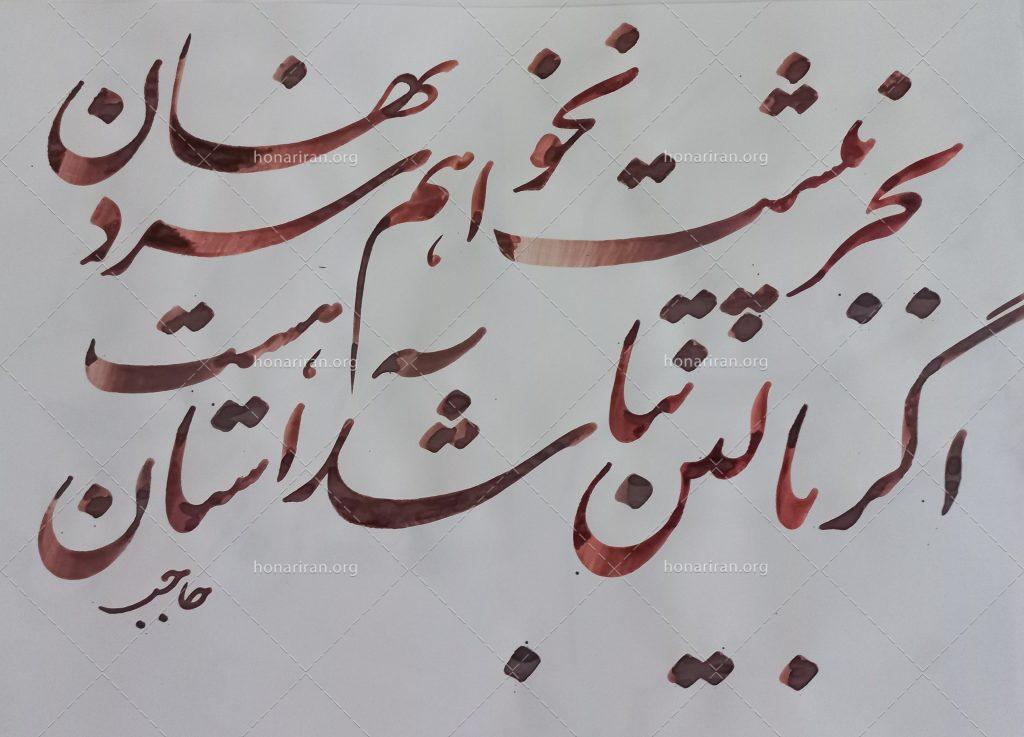 بجز پیشت نخواهم سر نهادن
اگر بالین نباشد آستان هست
حاجب
honariran.org honariran.org
honariran.org honariran.org
honariran.org honariran.org